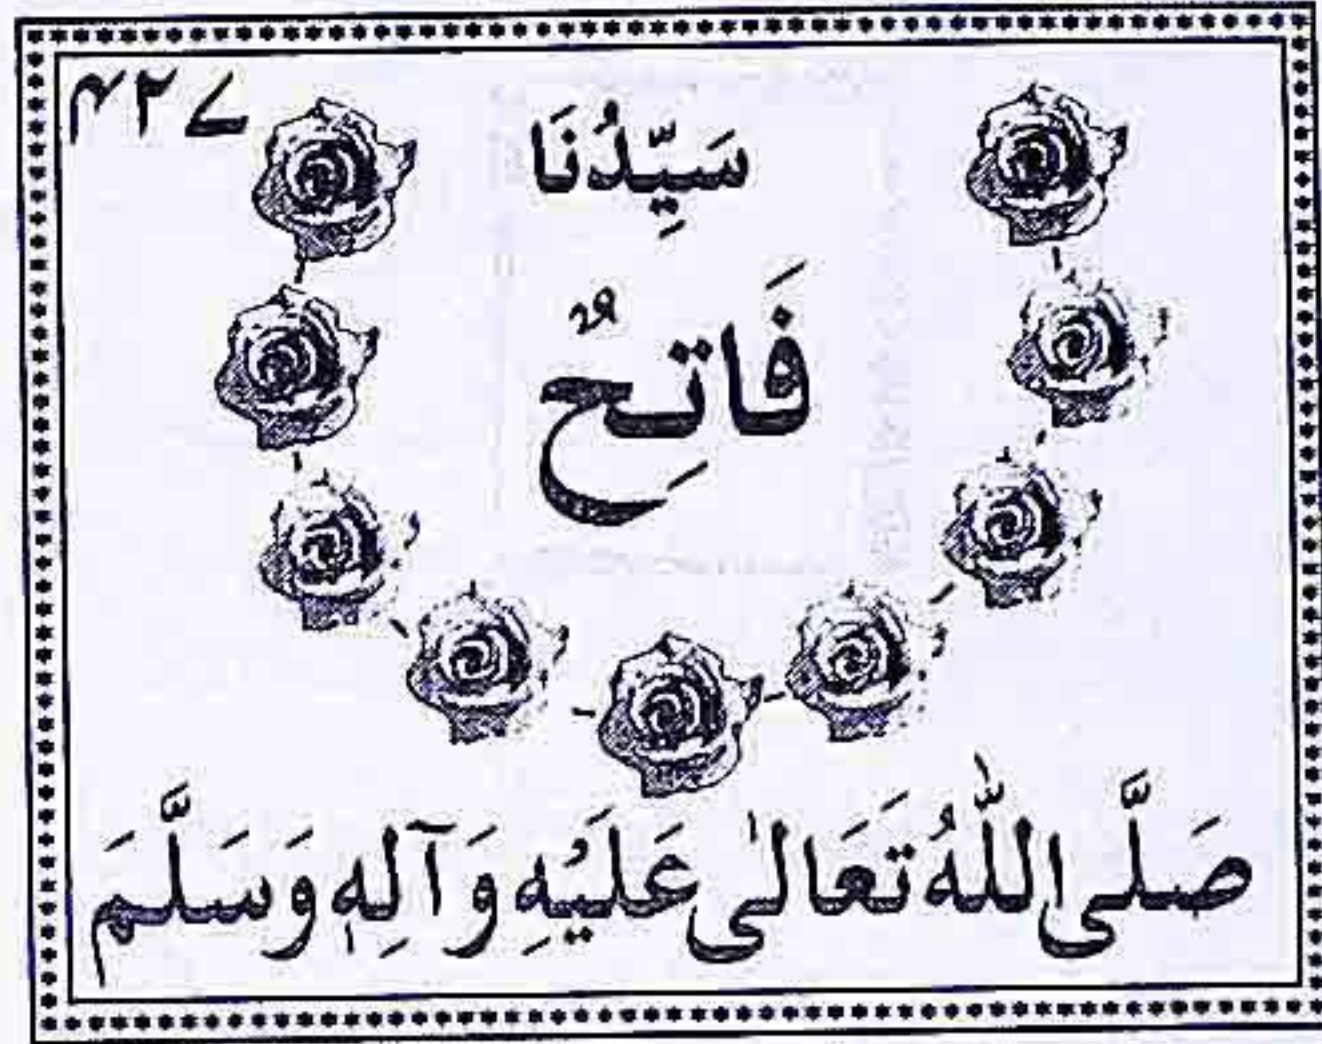 ۴۲۷
سَيِّدُنَا
فَاتِحٌ
صَلَّى اللّٰهُ تَعَالىٰ عَلَيْهِ وَآلِهٖ وَسَلَّمَ